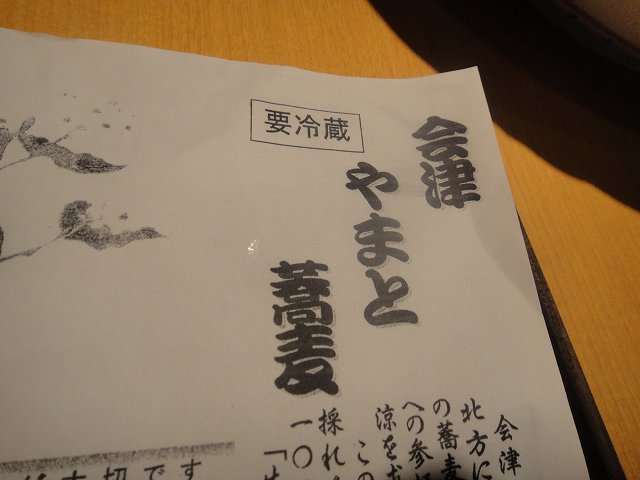 要冷蔵
会津
やまと
蕎麦
会津
北方に
の蕎麦
への参
涼を
この
採れ
一〇「
大切です